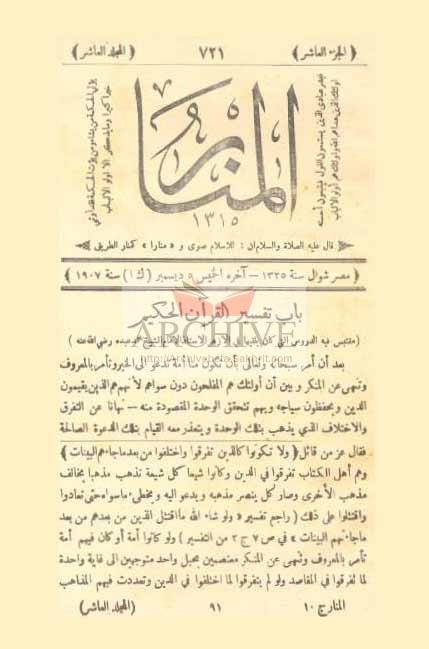 ﴿ الجزء العاشر ﴾ ٧٢١ ﴿ المجلد العاشر ﴾
فبشر عبادي الذين يستمعون القول فيتبعون أحسنه
أولئك الذين هداهم الله وأولئك هم أولو الألباب
المنار
١٣١٥
يؤتي الحكمة من يشاء ومن يؤت الحكمة فقد أوتي
خيرا كثيرا وما يذكر إلا أولو الألباب
قال عليه الصلاة والسلام ان : للاسلام صوى و « منارا » كمنار الطريق
﴿ مصر شوال سنة ١٣٢٥ — آخره الخميس ٥ ديسمبر ( ك ١ ) سنة ١٩٠٧ ﴾
باب تفسير القرآن الحكيم
ARCHIVE
http://Archivebeta.Sakhrit.com
( مقتبس فيه الدروس التي كان يلقيها في الأزهر الاستاذ الامام الشيخ محمد عبده رضي الله عنه )
بعد أن أمر سبحانه وتعالى بأن تكون منا أمة تدعو الى الخير وتأمر بالمعروف
وتنهى عن المنكر وبين أن أولئك هم المفلحون دون سواهم لأنهم هم الذين يقيمون
الدين ويحفظون سياجه وبهم تتحقق الوحدة المقصودة منه — نهانا عن التفرق
والاختلاف الذي يذهب بتلك الوحدة ويتعذر معه القيام بتلك الدعوة الصالحة
فقال عز من قائل ﴿ ولا تكونوا كالذين تفرقوا واختلفوا من بعد ما جاءهم البينات ﴾
وهم أهل الكتاب تفرقوا في الدين وكانوا شيعا كل شيعة تذهب مذهبا يخالف
مذهب الأخرى وصار كل ينصر مذهبه ويدعو اليه و يخطئ ما سواه حتى تعادوا
واقتتلوا على ذلك ( راجع تفسير « ولو شاء الله ما اقتتل الذين من بعدهم من بعد
ما جاءتهم البينات » في ص ٧ ج ٣ من التفسير ) ولو كانوا أمة أو كان فيهم أمة
تأمر بالمعروف وتنهى عن المنكر معتصمين بحبل واحد متوجهين الى غاية واحدة
لما تفرقوا في المقاصد ولو لم يتفرقوا لما اختلفوا في الدين وتعددت فيهم المذاهب
المنار ج ١٠ ٩١ ( المجلد العاشر )